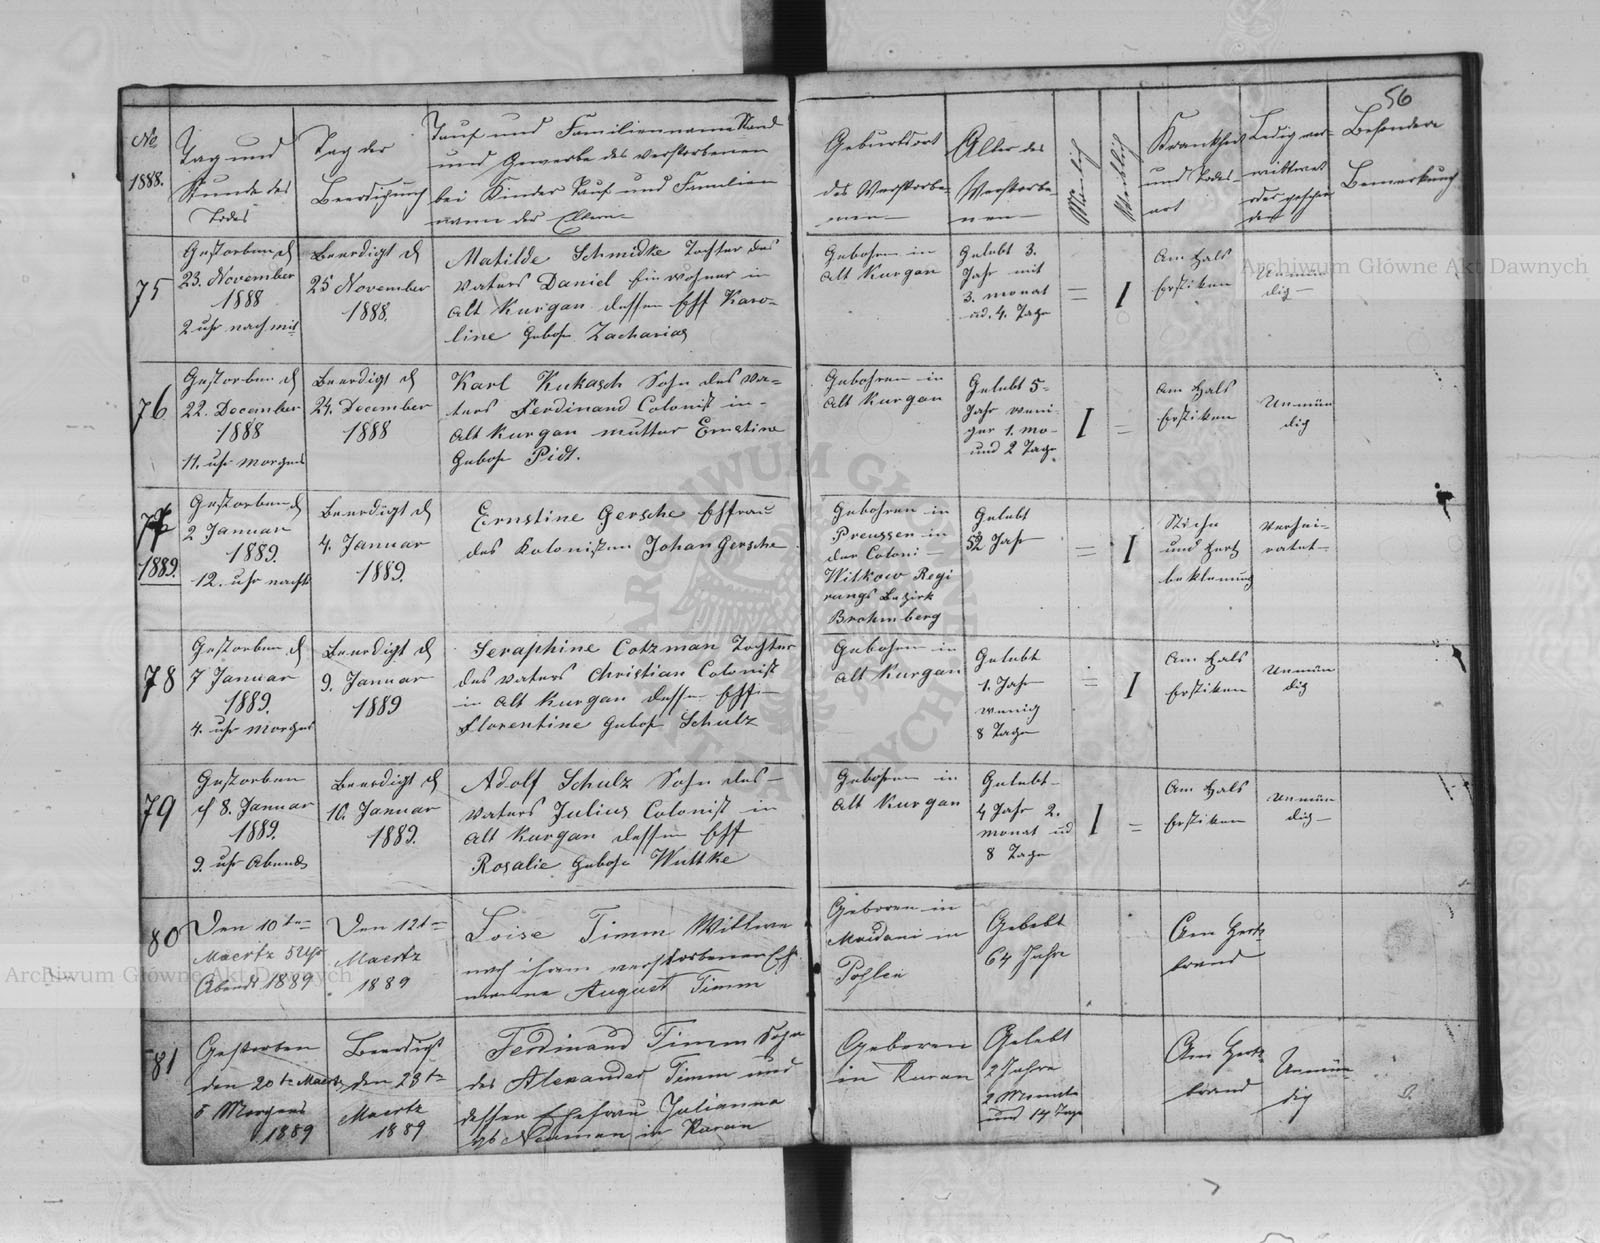 56
No
1888.
Tag und
Stunde des
Todes
Tag der
Beerdigung
Tauf und Familienname Stand
und Gewerbe des verstorbenen
bei Kinder Tauf und Familien
namen der Eltern
Geburtsort
des Verstorbe-
nen
Alter des
Verstorbe-
nen
Mänlich
Weiblich
Krankheit
und Todes-
art
Ledig ver-
wittwet
oder geschie
den
Besondere
Bemerkung
75
Gestorben d
23. November
1888
2 uhr nach mit
Beerdigt d
25 November
1888.
Matilde Schmidke Tochter des
vaters Daniel Einwohner in
Alt Kurgan dessen Eff Karo-
line Gebohr Zacharias
Gebohren in
Alt Kurgan
Gelebt 3.
Jahr mit
3. monat
ud. 4. Tage
=
I
Am Hals
Erstiken
Unmün
dig
76
Gestorben d
22. December
1888
11. uhr morgens
Beerdigt d
24. December
1888
Karl Kukasch Sohn des va-
ters Ferdinand Colonist in-
Alt Kurgan mutter Ernstine
Gebohr Pidt.
Gebohren in
Alt Kurgan
Gelebt 5-
Jahr weni-
ger 1. mo-
und 2 Tage
I
=
Am Hals
Erstiken
Unmün
dig
77
1889.
Gestorben d
2 Januar
1889.
12. uhr nachts
Beerdigt d
4. Januar
1889.
Ernstine Gersche Effrau
des Kolonisten Johan Gersche
Gebohren in
Preussen in
der Coloni-
Witkow Regi
rungs Bezirk
Brohmberg
Gelebt
52 Jahr
=
I
Stiche
und Hertz
beklemung
Verhei-
ratet
78
Gestorben d
7 Januar
1889.
4. uhr morgens
Beerdigt d
9. Januar
1889
Seraphine Cotzman Tochter
des vaters Christian Colonist
in Alt Kurgan dessen Eff
Florentine Gebohr Schulz
Gebohren in
Alt Kurgan
Gelebt
1. Jahr
wenig
8 Tage
=
I
Am Hals
Erstiken
Unmün
dig
79
Gestorben
d 8. Januar
1889.
9. uhr Abends
Beerdigt d
10. Januar
1889.
Adolf Schulz Sohn des-
vaters Julius Colonist in
Alt Kurgan dessen Eff
Rosalie Gebohr Wuttke
Gebohren in
Alt Kurgan
Gelebt
4 Jahr 2.
monat ud
8 Tage
I
=
Am Hals
Erstiken
Unmün
dig
80
Den 10ten
Maertz 5 Uhr
Abends 1889
Den 12t
Maertz
1889
Loise Timm Wittwe
nach ihrem verstorbenen Eh
manne August Timm
Geboren in
in
Pohlen
Gelebt
64 Jahre
Am Hertz
brand
81
Gestorben
den 20ten Maertz
5 Morgens
1889
Beerdigt
den 23t
Maertz
1889
Ferdinand Timm Sohn
des Alexander Timm und
dessen Ehefrau Julianna
gb Neuman in Kuran
Geboren
in Kuran
Gelebt
2 Jahre
2 Monate
und 14 Tage
Am Hertz
brand
Unmün
dig
Archiwum Główne Akt Dawnych
Archiwum Główne Akt Dawnych
ARCHIWUM GŁÓWNE AKT DAWNYCH